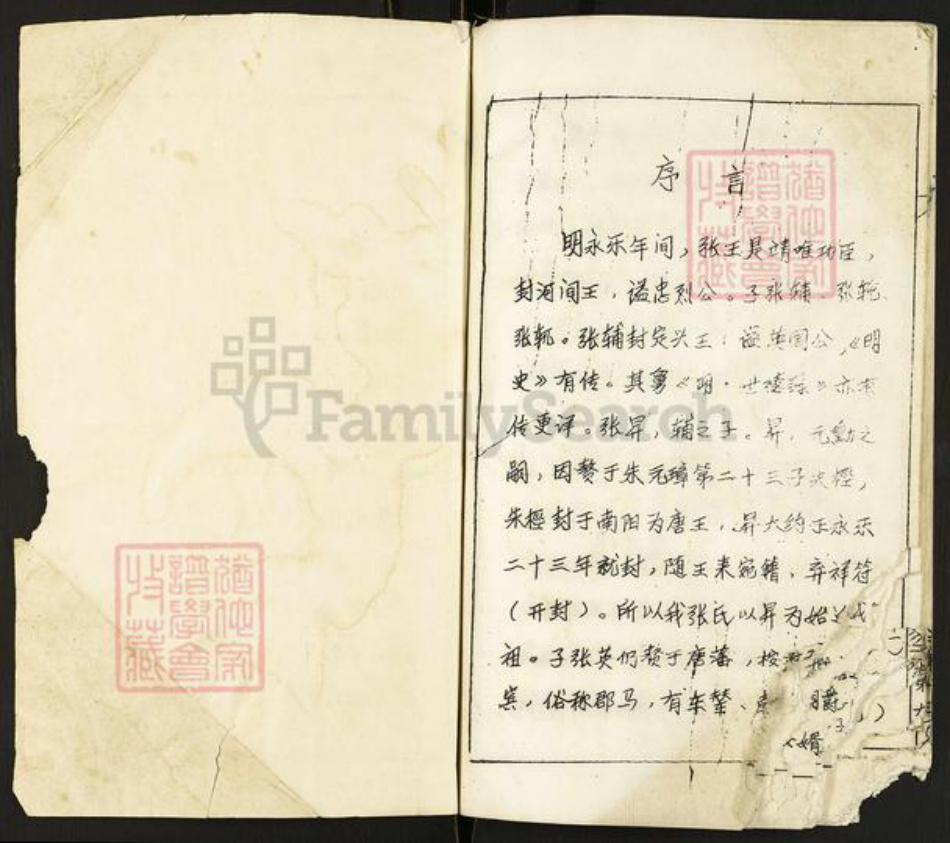 序言
明永乐年间，张玉是靖难功臣，
封河间王，谥忠烈公。子张辅、张
张軏。张辅封定兴王：谥英国公，《明
史》有传。其 《明·世 录》亦有
传更详。张昇，辅之子。昇，元勳之
嗣，因赘于朱元璋第二十三子朱桱，
朱桱封于南阳为唐王，昇大约于永乐
二十三年就封，随王来宛籍、弃祥符
（开封）。所以我张氏以昇为始
祖。子张英仍赘于唐藩，
宾，俗称郡马，有东辇、 爵
婿
猶他家
譜學會
收藏
猶他家
譜學會
收藏
FamilySearch